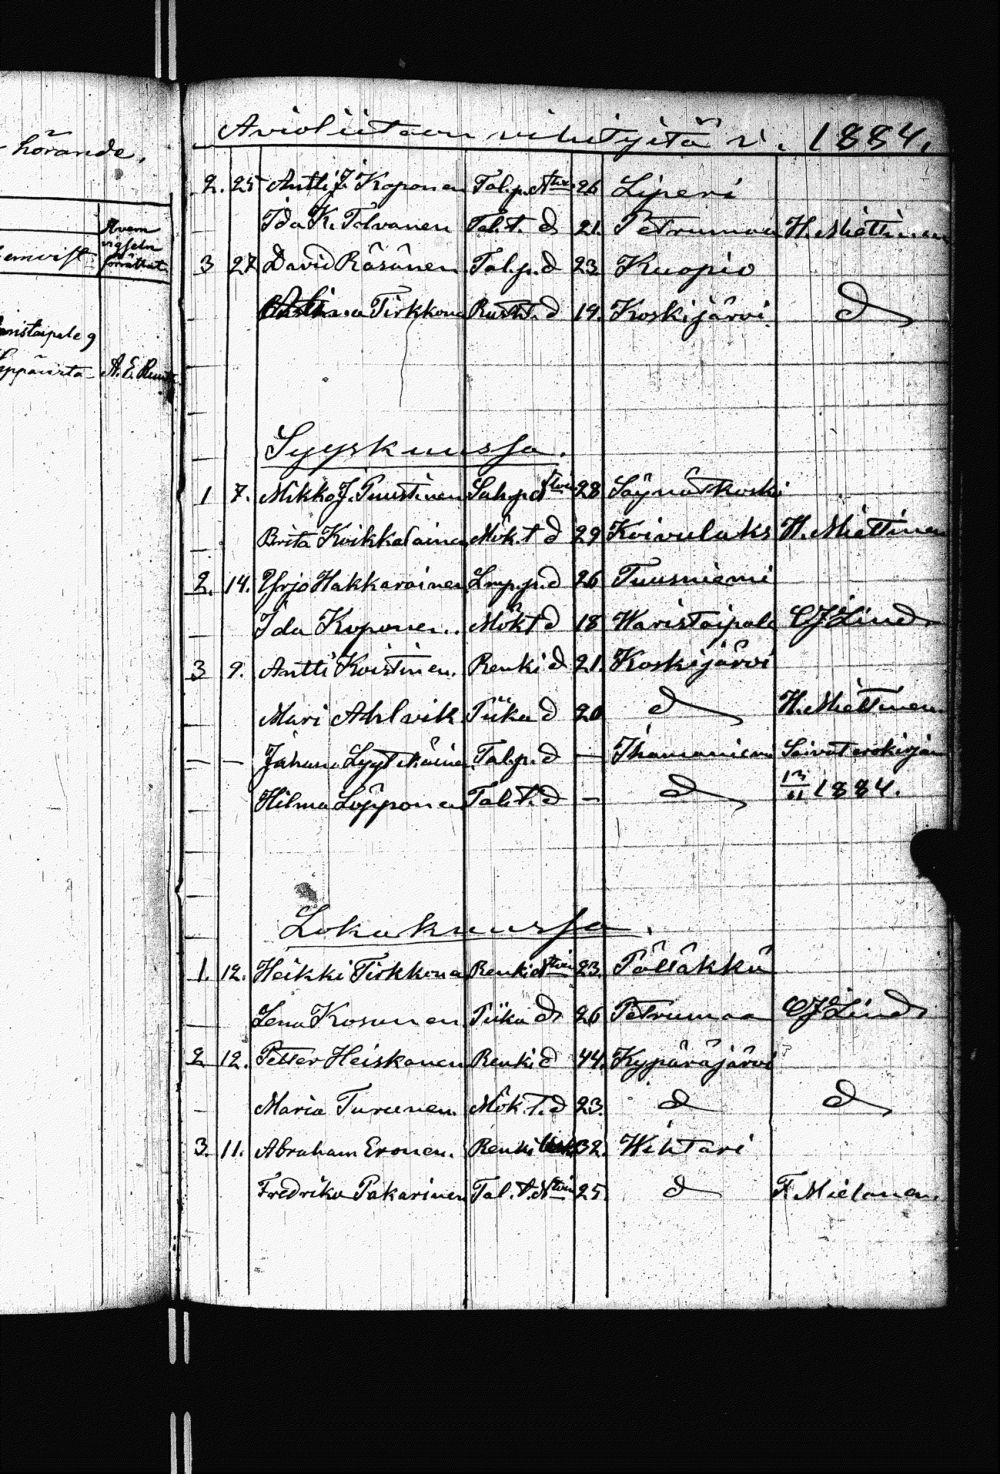 hörande.
Hvem
vigseln
förrättat
A. E.
Avioliitoon vihityitä v. 1884.
2. 25 Antti J. Koponen Tal.p. Ntm 26 Liperi
Ida K. Tolvanen Tal.t. d 21. Petrumaa H. Miettinen
3 27 David Räsänen Tal.p. d 23. Kuopio
Tirkkona Rust.t. d 19. Koskijärvi d
Syyskuussa.
1 7. Mikko J. Puustinen Lah.p. 28 Säynätkoski
Brita Koikkalainen Mök.t d 29 Koivulaks H. Miettinen
2. 14. Yrjö Hakkarainen Lmp.p. d 26 Tuusniemi
Ida Koponen. Mökt d 18 Waristaipale CJ Lind
3 9. Antti Koistinen. Renki d 21. Koskijärvi
Mari Ahlvik Piika d 20 d H. Miettinen
— — Juhana Lyytikäinen Tal.p. d — Ihamaniemi Saivat erokirjan
Hilma Löpponen Tal.t. d — d 13/11 1884.
Lokakuussa.
1. 12. Heikki Tirkkona Renki 23. Pölläkkä
Lena Kosunen Piika d 26 Petrumaa CJ Lind
2 12. Petter Heiskanen Renki d 44. Kypäräjärvi
Maria Turunen. Mök.t. d 23. d d
3. 11. Abraham Eronen. Renki 32. Wihtari
Fredrika Pakarinen Tal.t. 25. d F. Mielonen.